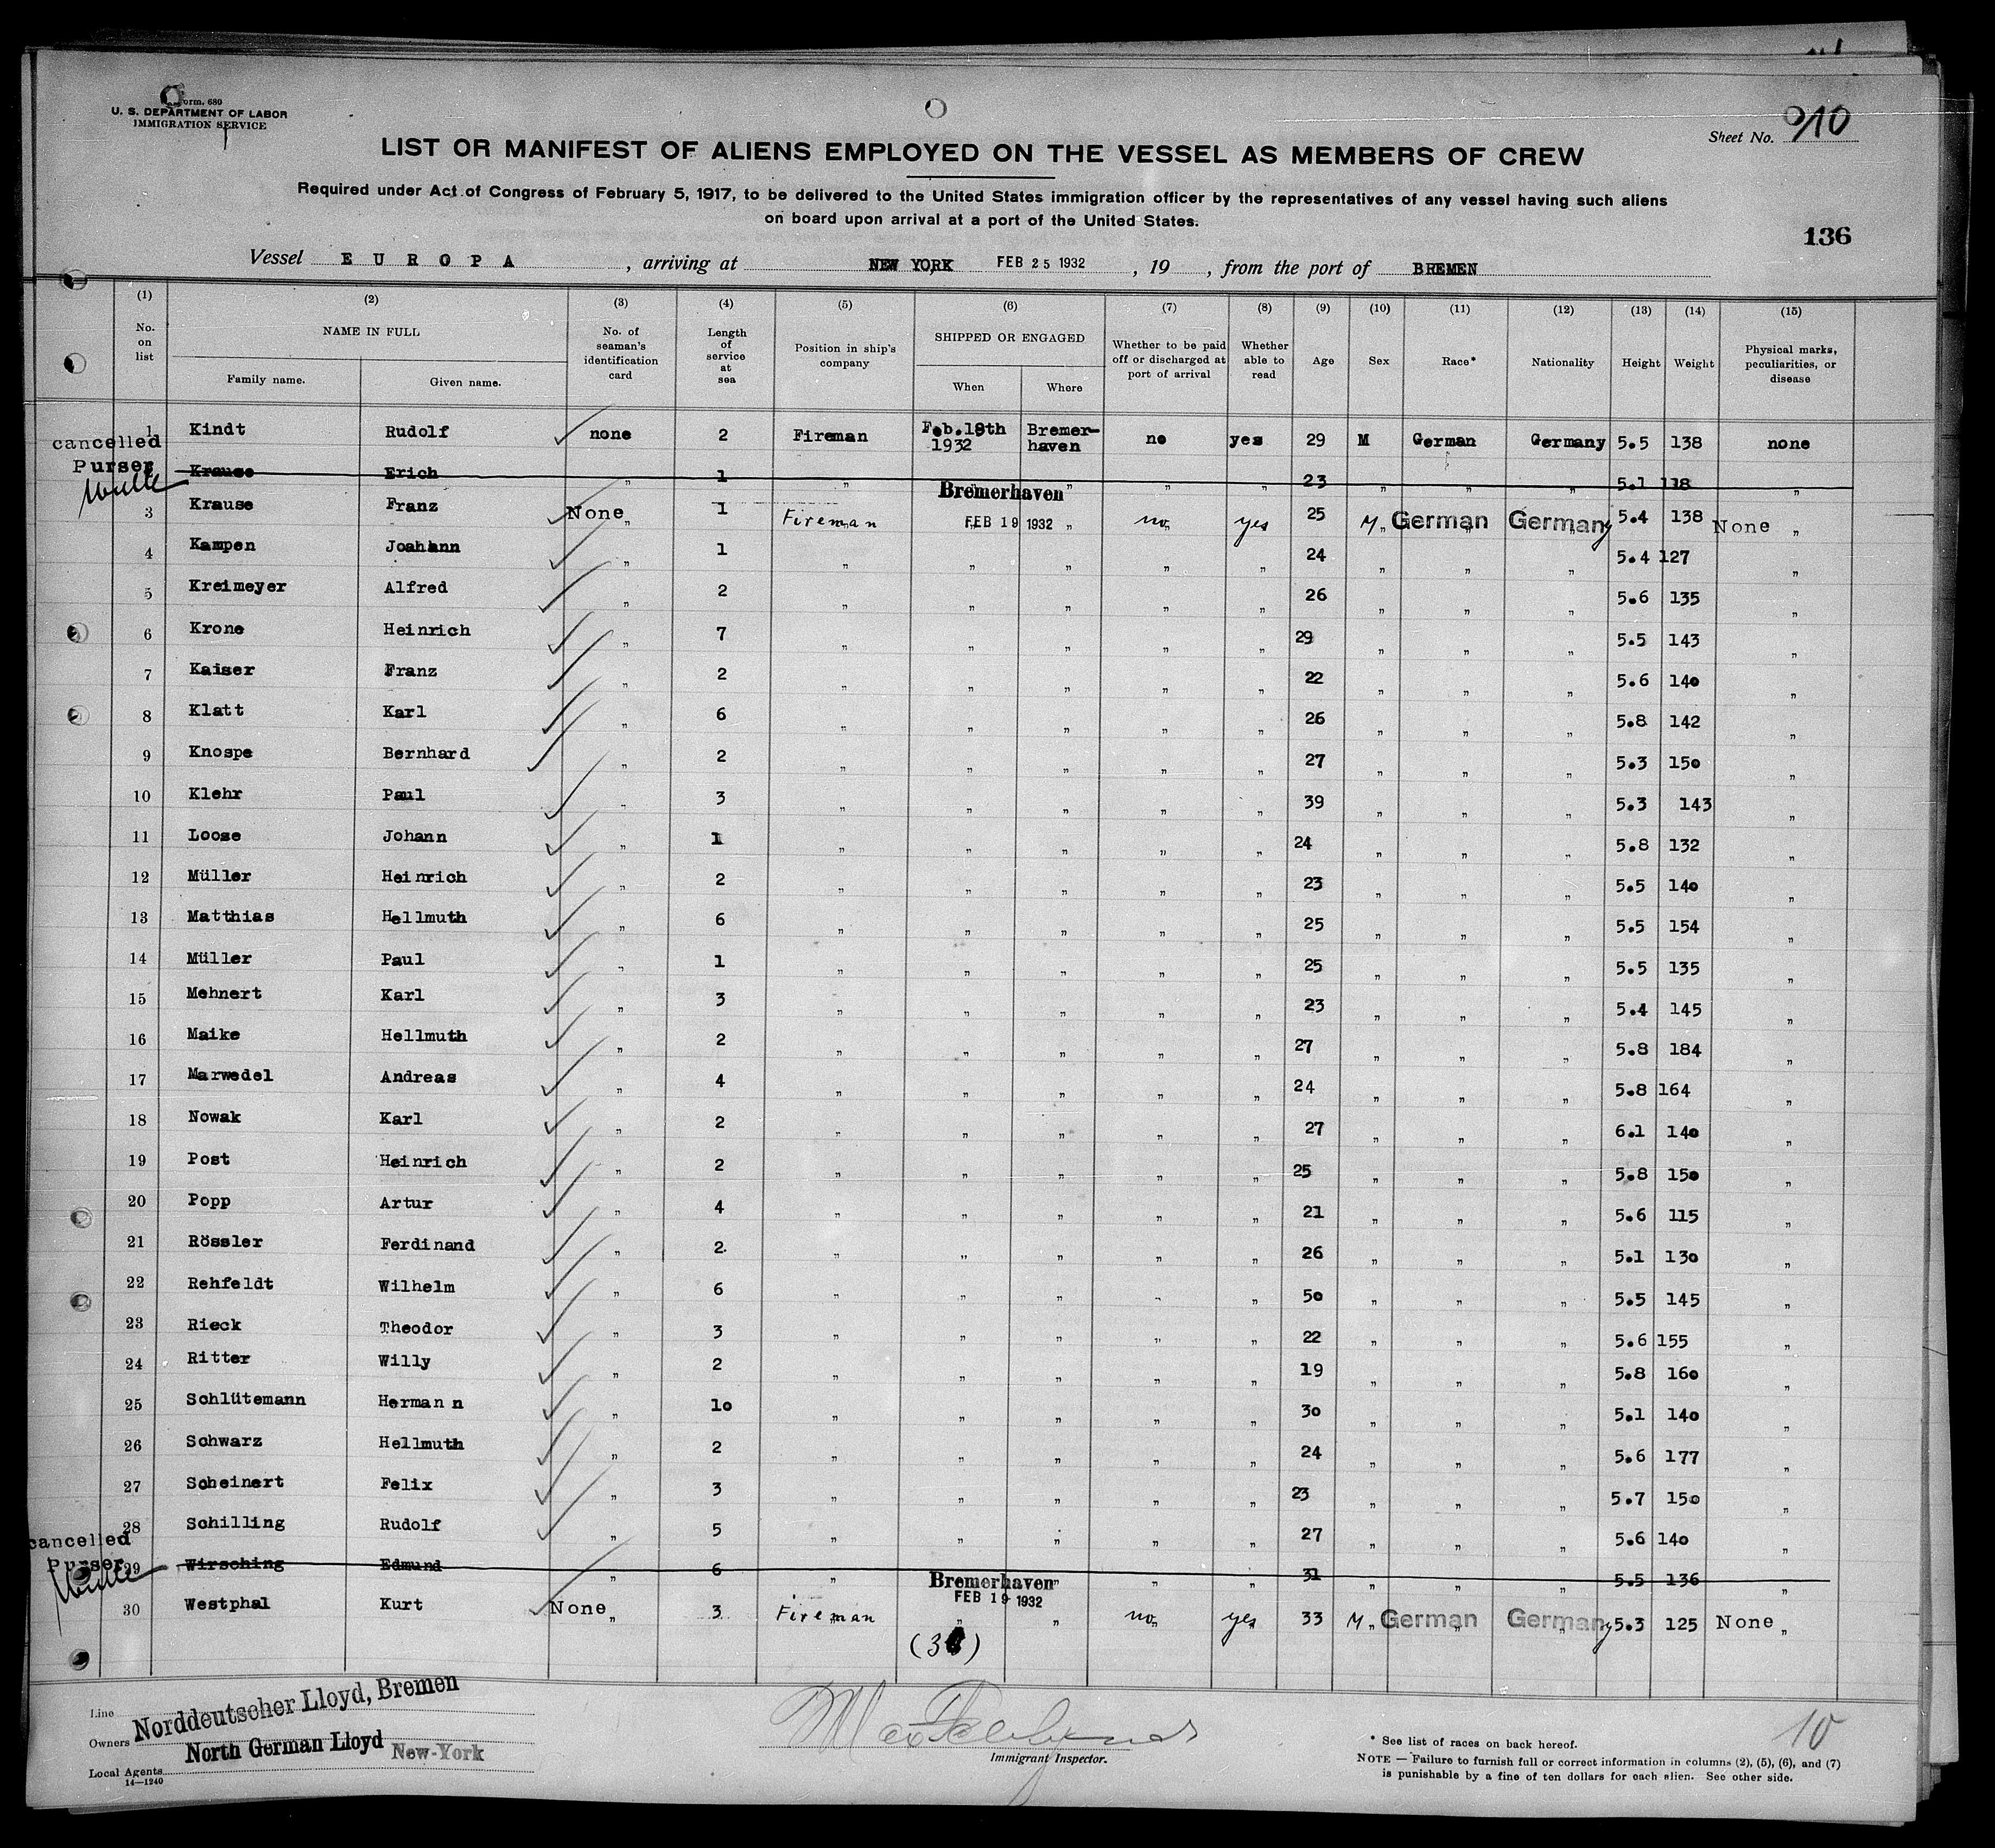 Form. 680
U. S. DEPARTMENT OF LABOR
IMMIGRATION SERVICE
Sheet No. 10
LIST OR MANIFEST OF ALIENS EMPLOYED ON THE VESSEL AS MEMBERS OF CREW
Required under Act of Congress of February 5, 1917, to be delivered to the United States immigration officer by the representatives of any vessel having such aliens
on board upon arrival at a port of the United States.
136
Vessel E U R O P A , arriving at NEW YORK FEB 25 1932 , 19 , from the port of BREMEN
(1) (2) (3) (4) (5) (6) (7) (8) (9) (10) (11) (12) (13) (14) (15)
No. on list NAME IN FULL Family name. Given name. No. of seaman's identification card Length of service at sea Position in ship's company SHIPPED OR ENGAGED When Where Whether to be paid off or discharged at port of arrival Whether able to read Age Sex Race* Nationality Height Weight Physical marks, peculiarities, or disease
1 Kindt Rudolf none 2 Fireman Feb.18th 1932 Bremerhaven no yes 29 M German Germany 5.5 138 none
cancelled
Purser
Krause Erich „ 1 „ „ „ „ „ 23 „ „ „ 5.1 118 „
3 Krause Franz None „ 1 Fireman Bremerhaven FEB 19 1932 „ no yes 25 M German Germany 5.4 138 None „
4 Kampen Joahann „ 1 „ „ „ „ „ 24 „ „ „ 5.4 127 „
5 Kreimeyer Alfred „ 2 „ „ „ „ „ 26 „ „ „ 5.6 135 „
6 Krone Heinrich „ 7 „ „ „ „ „ 29 „ „ „ 5.5 143 „
7 Kaiser Franz „ 2 „ „ „ „ „ 22 „ „ „ 5.6 140 „
8 Klatt Karl „ 6 „ „ „ „ „ 26 „ „ „ 5.8 142 „
9 Knospe Bernhard „ 2 „ „ „ „ „ 27 „ „ „ 5.3 150 „
10 Klehr Paul „ 3 „ „ „ „ „ 39 „ „ „ 5.3 143 „
11 Loose Johann „ 1 „ „ „ „ „ 24 „ „ „ 5.8 132 „
12 Müller Heinrich „ 2 „ „ „ „ „ 23 „ „ „ 5.5 140 „
13 Matthias Hellmuth „ 6 „ „ „ „ „ 25 „ „ „ 5.5 154 „
14 Müller Paul „ 1 „ „ „ „ „ 25 „ „ „ 5.5 135 „
15 Mehnert Karl „ 3 „ „ „ „ „ 23 „ „ „ 5.4 145 „
16 Maike Hellmuth „ 2 „ „ „ „ „ 27 „ „ „ 5.8 184 „
17 Marwedel Andreas „ 4 „ „ „ „ „ 24 „ „ „ 5.8 164 „
18 Nowak Karl „ 2 „ „ „ „ „ 27 „ „ „ 6.1 140 „
19 Post Heinrich „ 2 „ „ „ „ „ 25 „ „ „ 5.8 150 „
20 Popp Artur „ 4 „ „ „ „ „ 21 „ „ „ 5.6 115 „
21 Rössler Ferdinand „ 2 „ „ „ „ „ 26 „ „ „ 5.1 130 „
22 Rehfeldt Wilhelm „ 6 „ „ „ „ „ 50 „ „ „ 5.5 145 „
23 Rieck Theodor „ 3 „ „ „ „ „ 22 „ „ „ 5.6 155 „
24 Ritter Willy „ 2 „ „ „ „ „ 19 „ „ „ 5.8 160 „
25 Schlütemann Hermann „ 10 „ „ „ „ „ 30 „ „ „ 5.1 140 „
26 Schwarz Hellmuth „ 2 „ „ „ „ „ 24 „ „ „ 5.6 177 „
27 Scheinert Felix „ 3 „ „ „ „ „ 23 „ „ „ 5.7 150 „
28 Schilling Rudolf „ 5 „ „ „ „ „ 27 „ „ „ 5.6 140 „
cancelled
Purser
29 Wirsching Edmund „ 6 „ „ „ „ 31 „ „ „ 5.5 136 „
30 Westphal Kurt None „ 3 Fireman Bremerhaven FEB 19 1932 „ „ no yes 33 M German Germany 5.3 125 None „
Line Norddeutscher Lloyd, Bremen
Owners North German Lloyd New-York
Local Agents
14—1240
Immigrant Inspector.
10
* See list of races on back hereof.
NOTE — Failure to furnish full or correct information in columns (2), (5), (6), and (7)
is punishable by a fine of ten dollars for each alien. See other side.